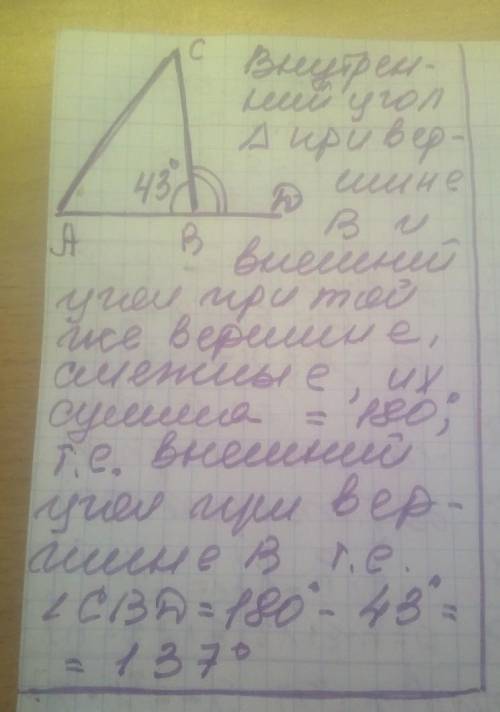 C
Внутрен-
ний угол
Δ при вер-
43°
шине
D
A
B
В и
внешний
угол при той
же вершине,
смежные, их
сумма = 180°,
т.е. внешний
угол при вер-
шине В т.е.
∠CBD = 180° - 43° =
= 137°